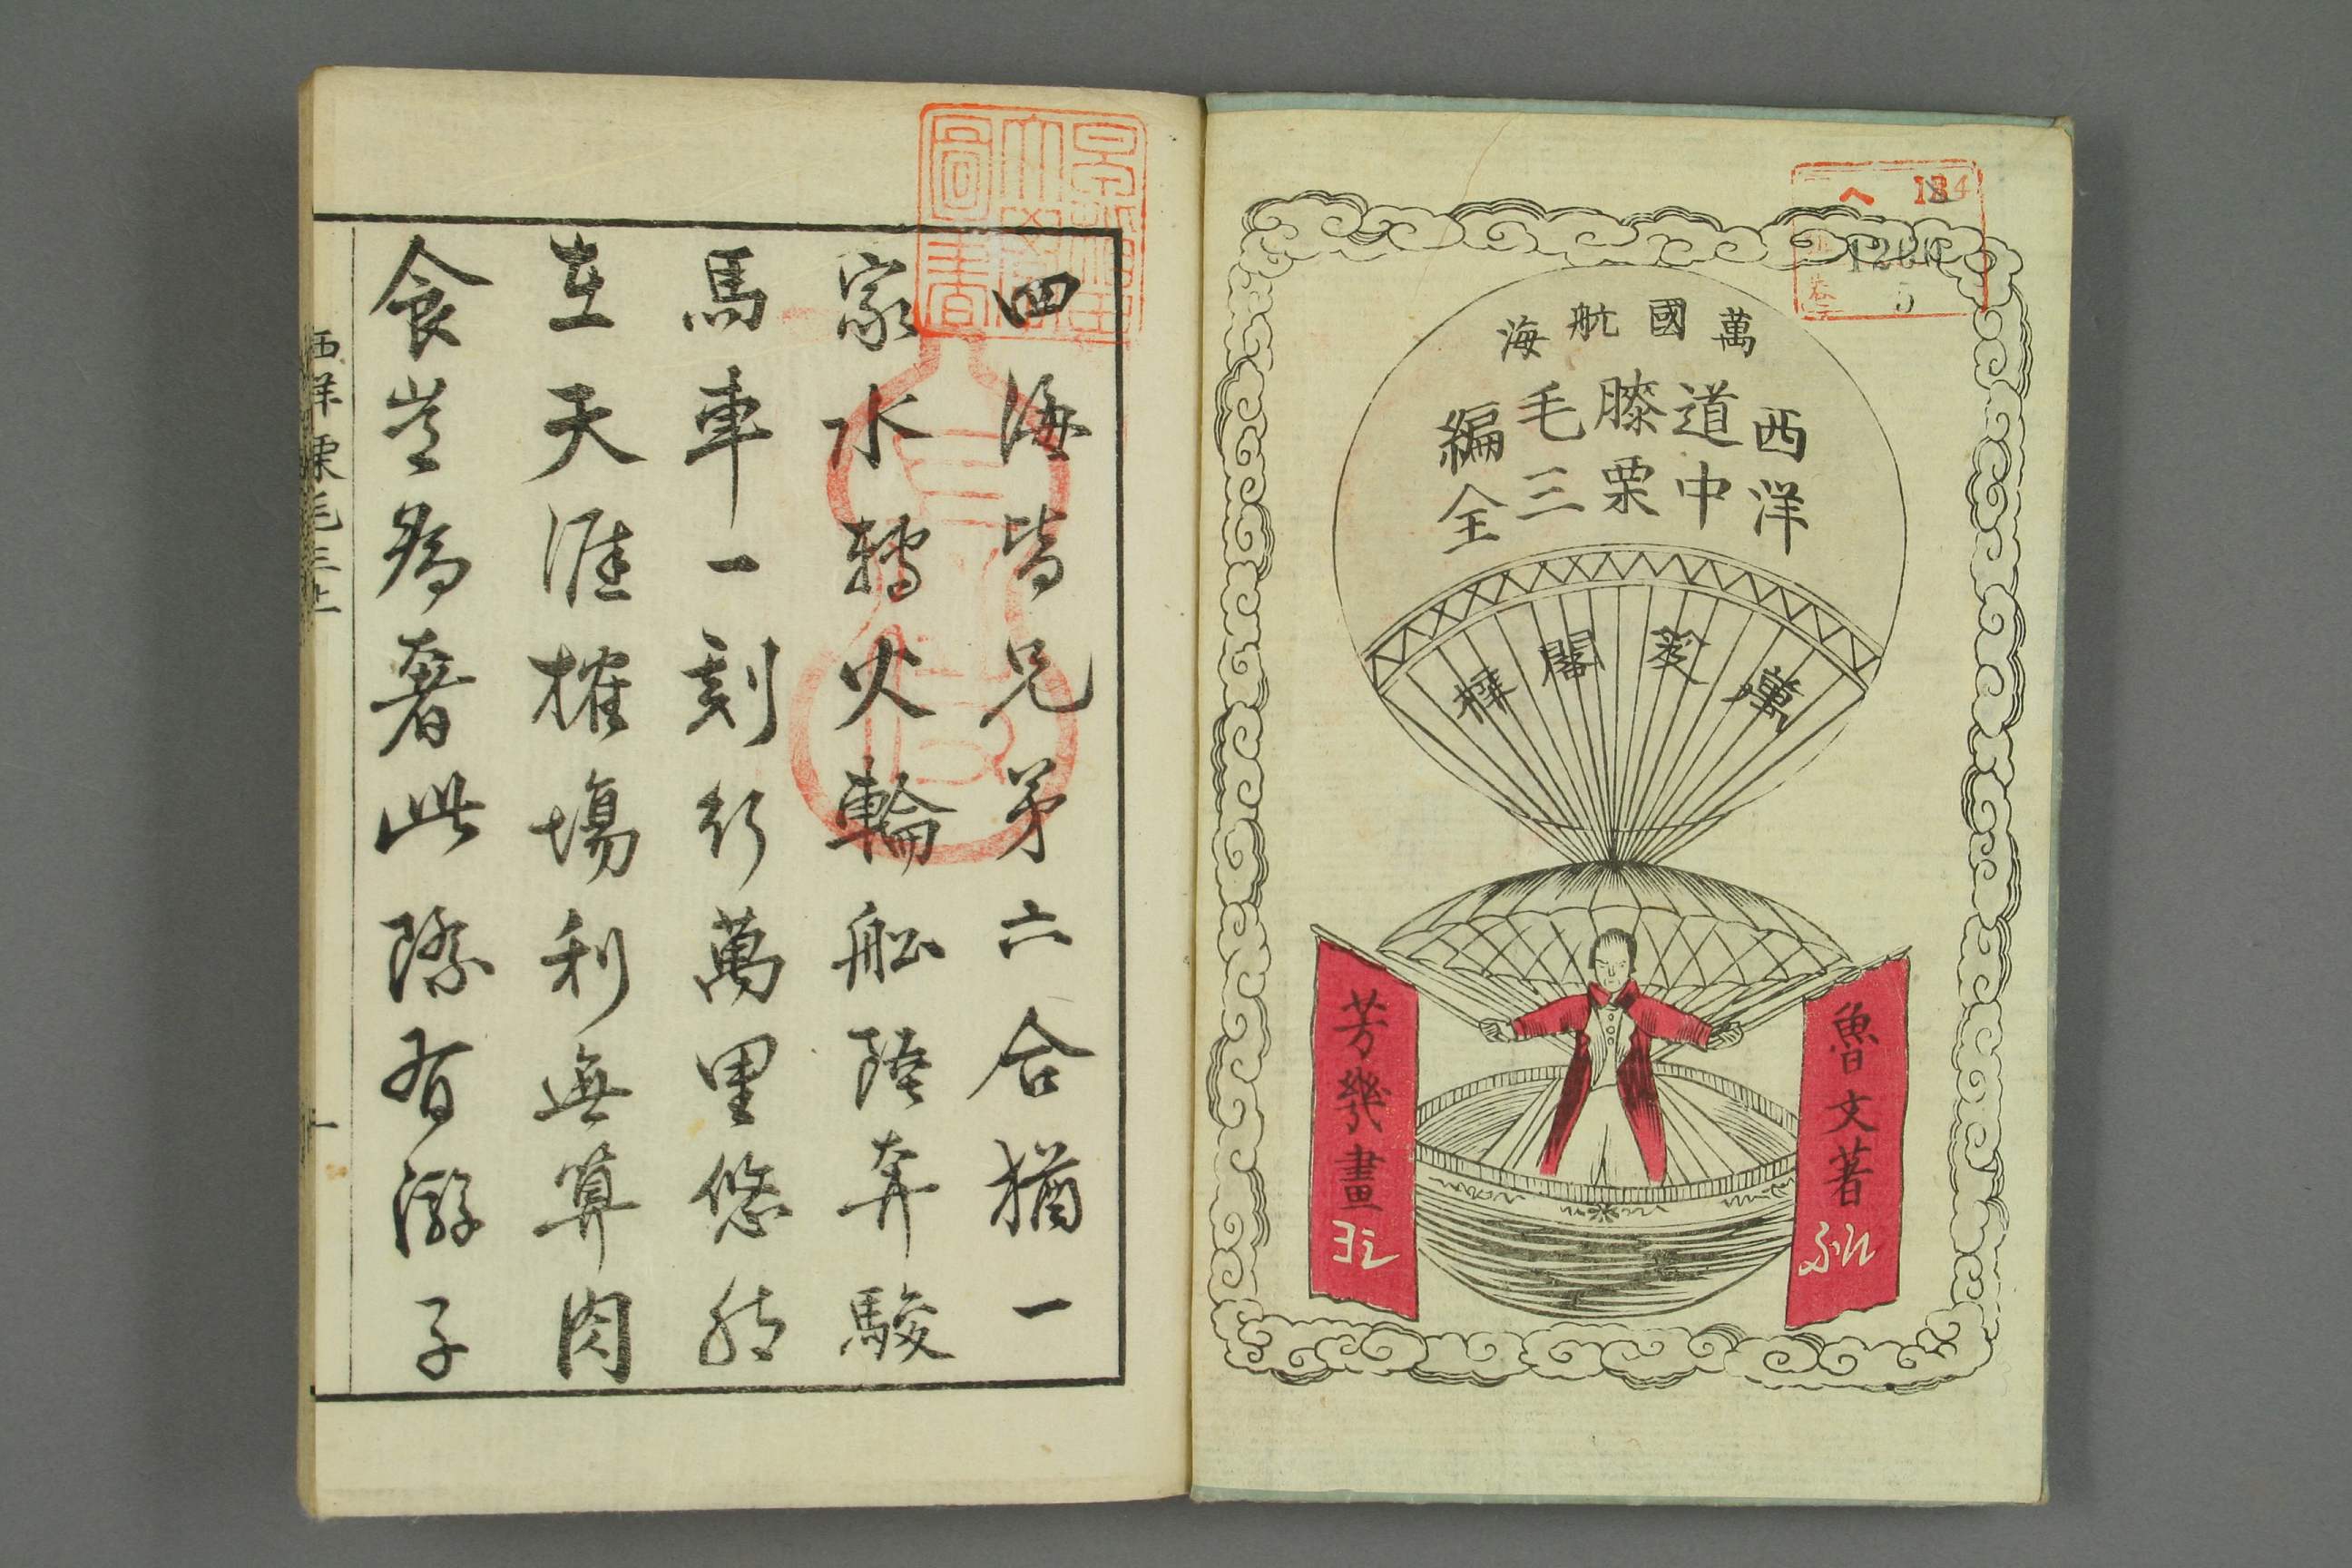 萬國航海
西洋
道中
膝栗
毛三
編全
萬笈閣梓
魯文著
芳幾畫
四海皆兄弟六合猶一
家水轉火輪船陸奔駿
馬車一刻行萬里悠然
在天涯榷場利無算肉
食豈為奢此際有游子
西洋栗毛三上
一